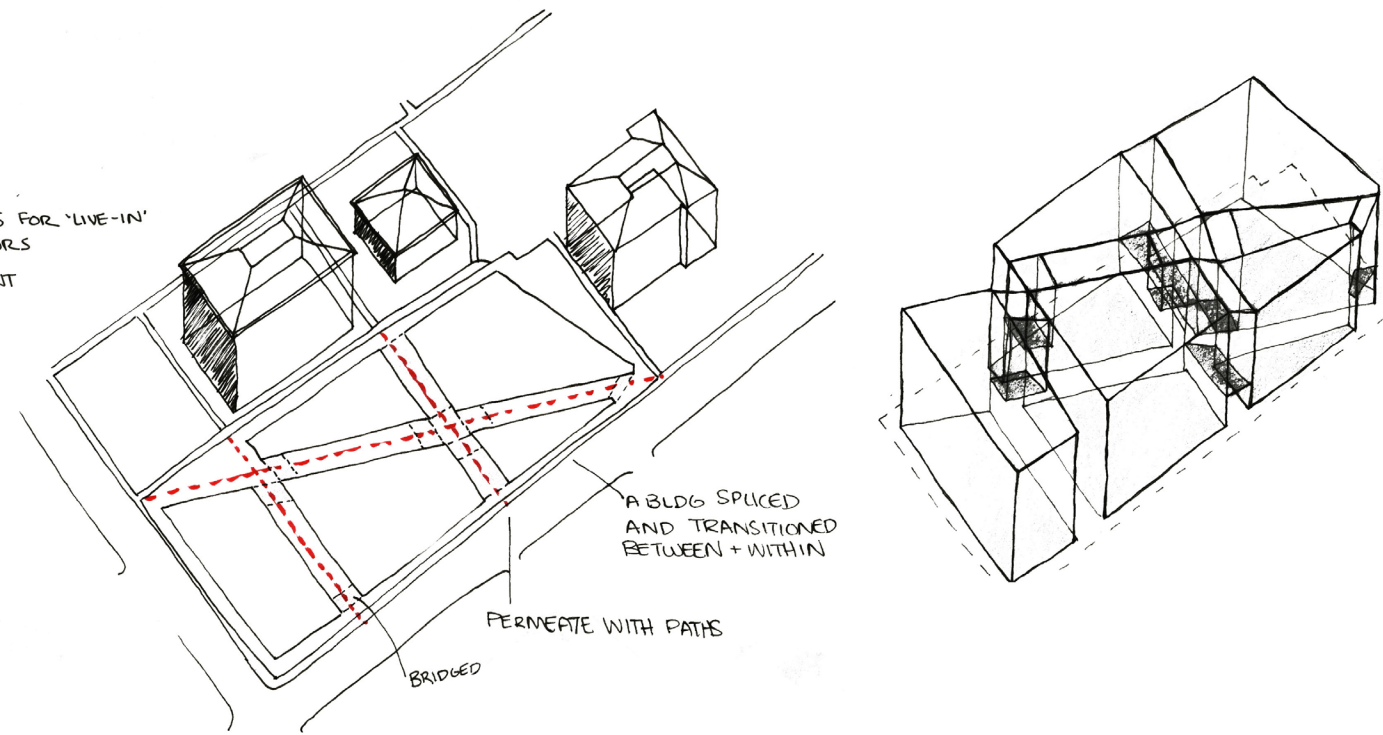 S FOR 'LIVE-IN'
ORS
NT
A BLDG SPLICED
AND TRANSITIONED
BETWEEN + WITHIN
PERMEATE WITH PATHS
BRIDGED